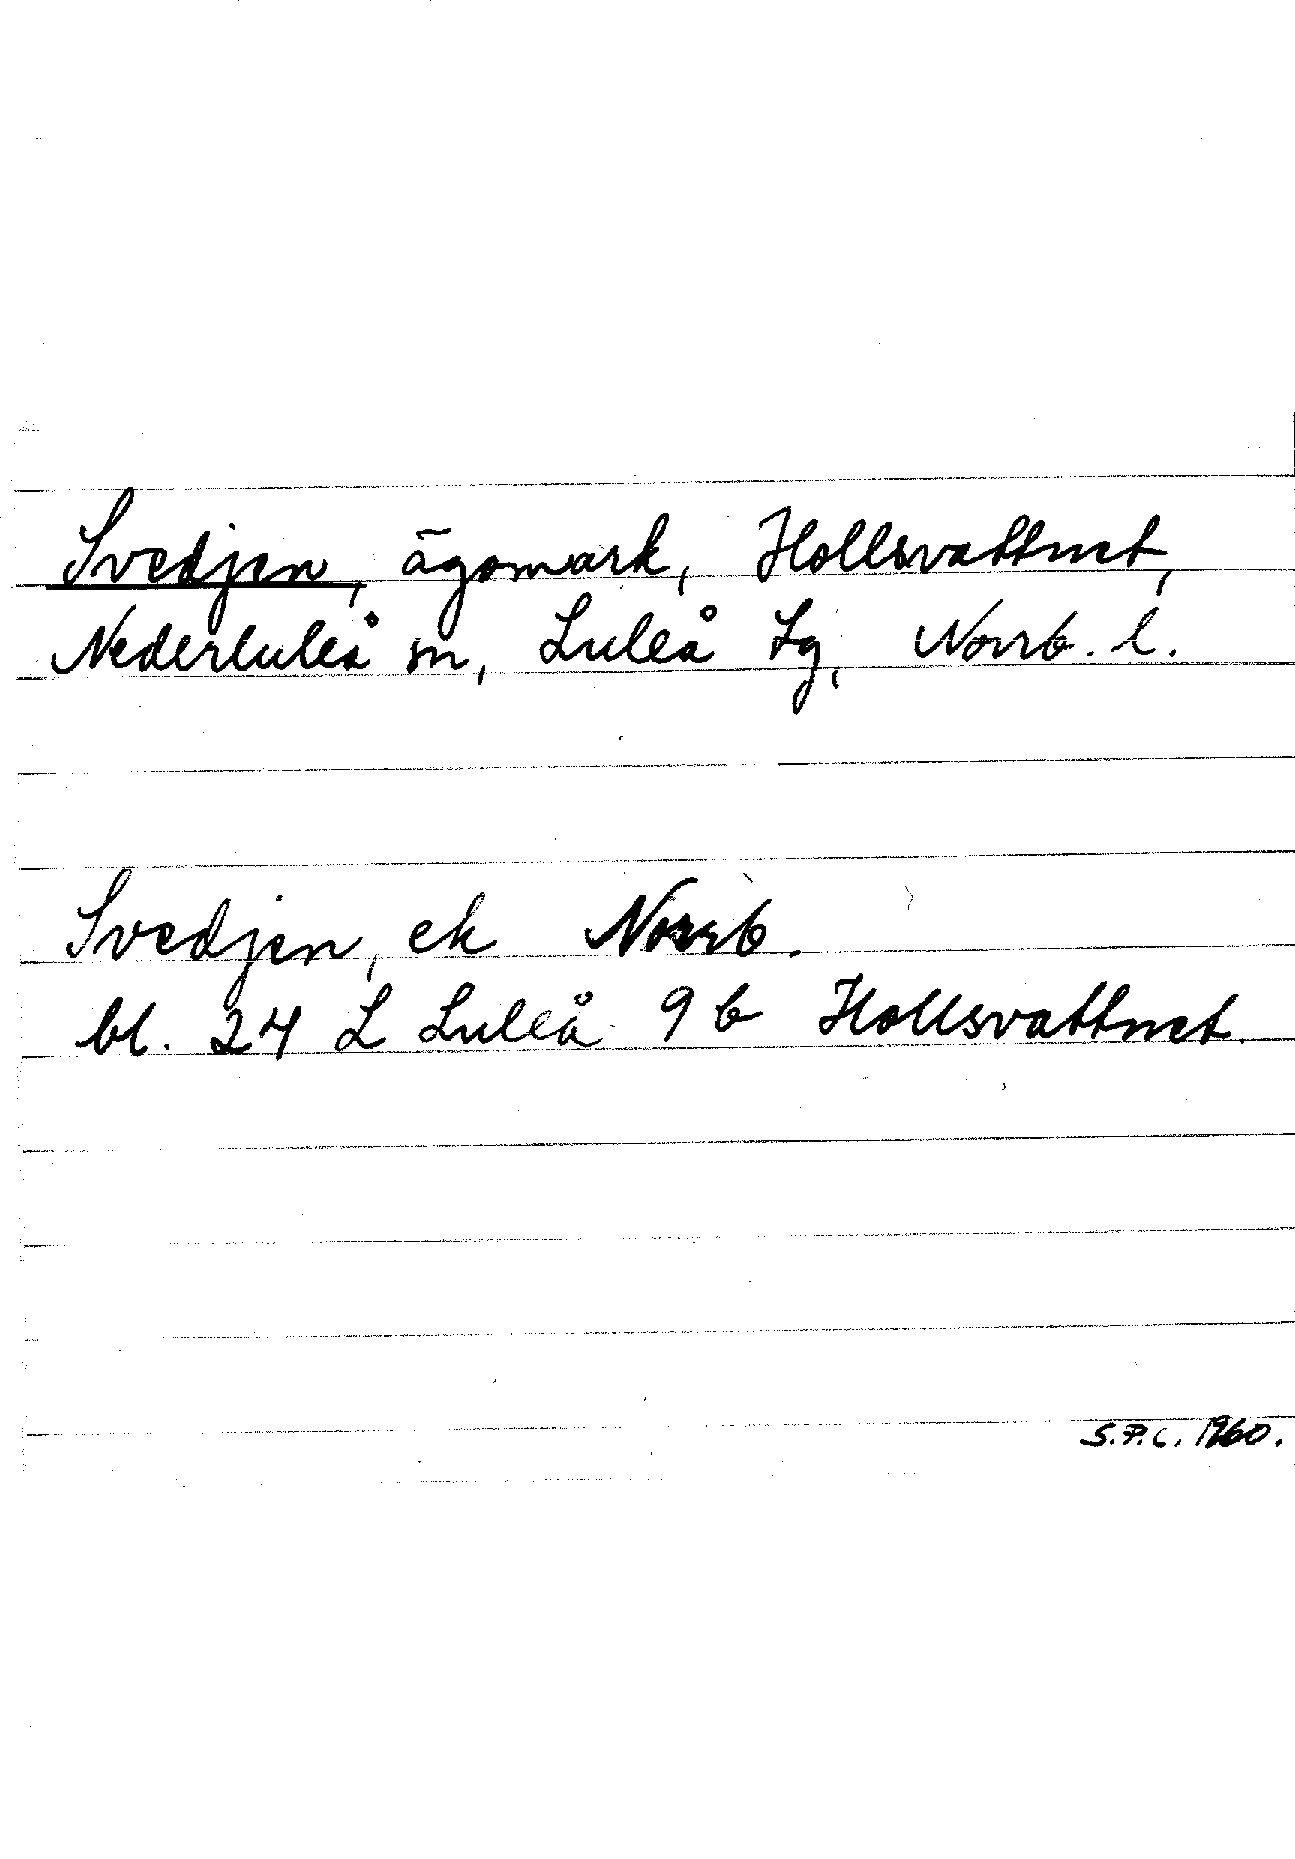 Svedjen, ägomark, Hollsvattnet,
Nederluleå sn, Luleå tg, Norrb. l.
Svedjen, ek Norrb.
bl. 24 L Luleå 9 b Hollsvattnet.
S.P.C. 1960.